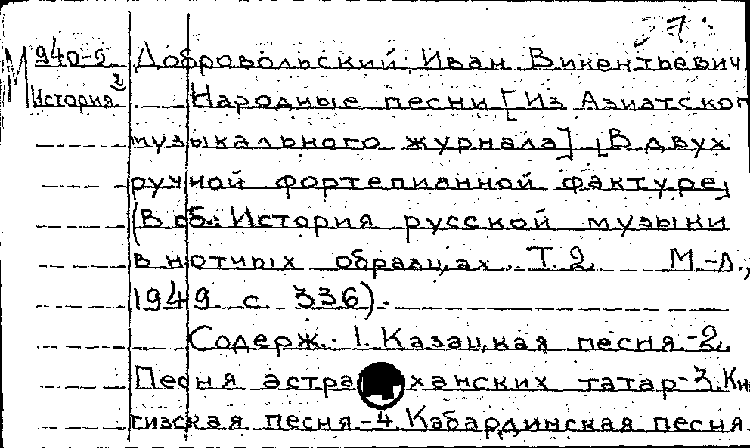 37.
М 940-с Добровольский, Иван Викентьевич
История 2 Народные песни [Из Азиатског
музыкального журнала] [В двух
ручной фортепианной фактуре]
(В сб.: История русской музыки
в нотных образцах. Т. 2. М.-Л.,
1949. с. 336).
Содерж.: 1. Казацкая песня.-2.
Песня астраханских татар-3. Ки
гизская песня-4. Кабардинская песня